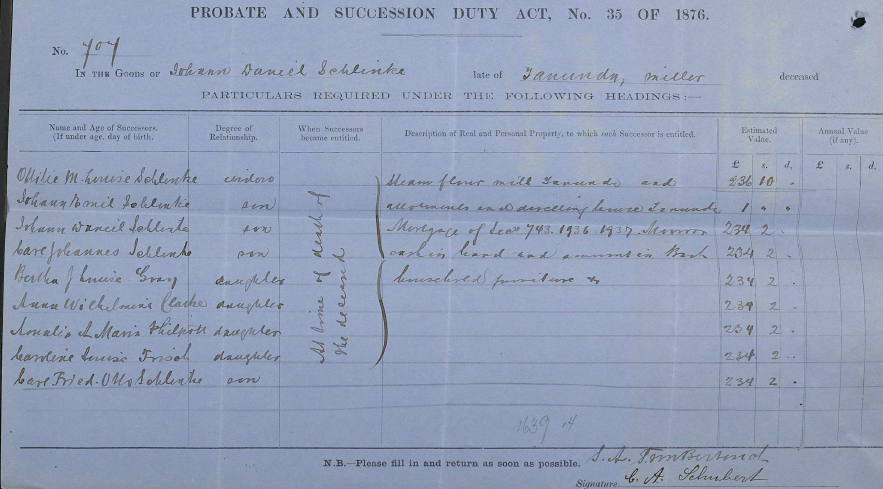 PROBATE AND SUCCESSION DUTY ACT, No. 35 OF 1876.
No. 707
IN THE GOODS OF Johann Daniel Schlinke late of Tanunda, miller deceased
PARTICULARS REQUIRED UNDER THE FOLLOWING HEADINGS:—
Name and Age of Successors. (If under age, day of birth. Degree of Relationship. When Successors became entitled. Description of Real and Personal Property, to which each Successor is entitled. Estimated Value. Annual Value (if any).
£ s. d. £ s. d.
Ottilie M. Louise Schlinke widow Steam flour mill Tanunda and 236 10 .
Johann Emil Schlinke son allotments and dwelling house Tanunda 1 " "
Johann Daniel Schlinke son Mortgage of Secs 743. 1936. 1937. 234 2 .
Carl Johannes Schlinke son cash in hand and amount in Bank 234 2 .
Bertha J Louise Gray daughter household furniture &c 234 2 .
Anna Wilhelmine Clarke daughter 234 2 .
Amalie A Maria Philpott daughter 234 2 .
Caroline Louise Frisch daughter 234 2 .
Carl Fried. Otto Schlinke son 234 2 .
At time of death of
the deceased
1639 14
N.B.—Please fill in and return as soon as possible.
Signature C. A. Schubert